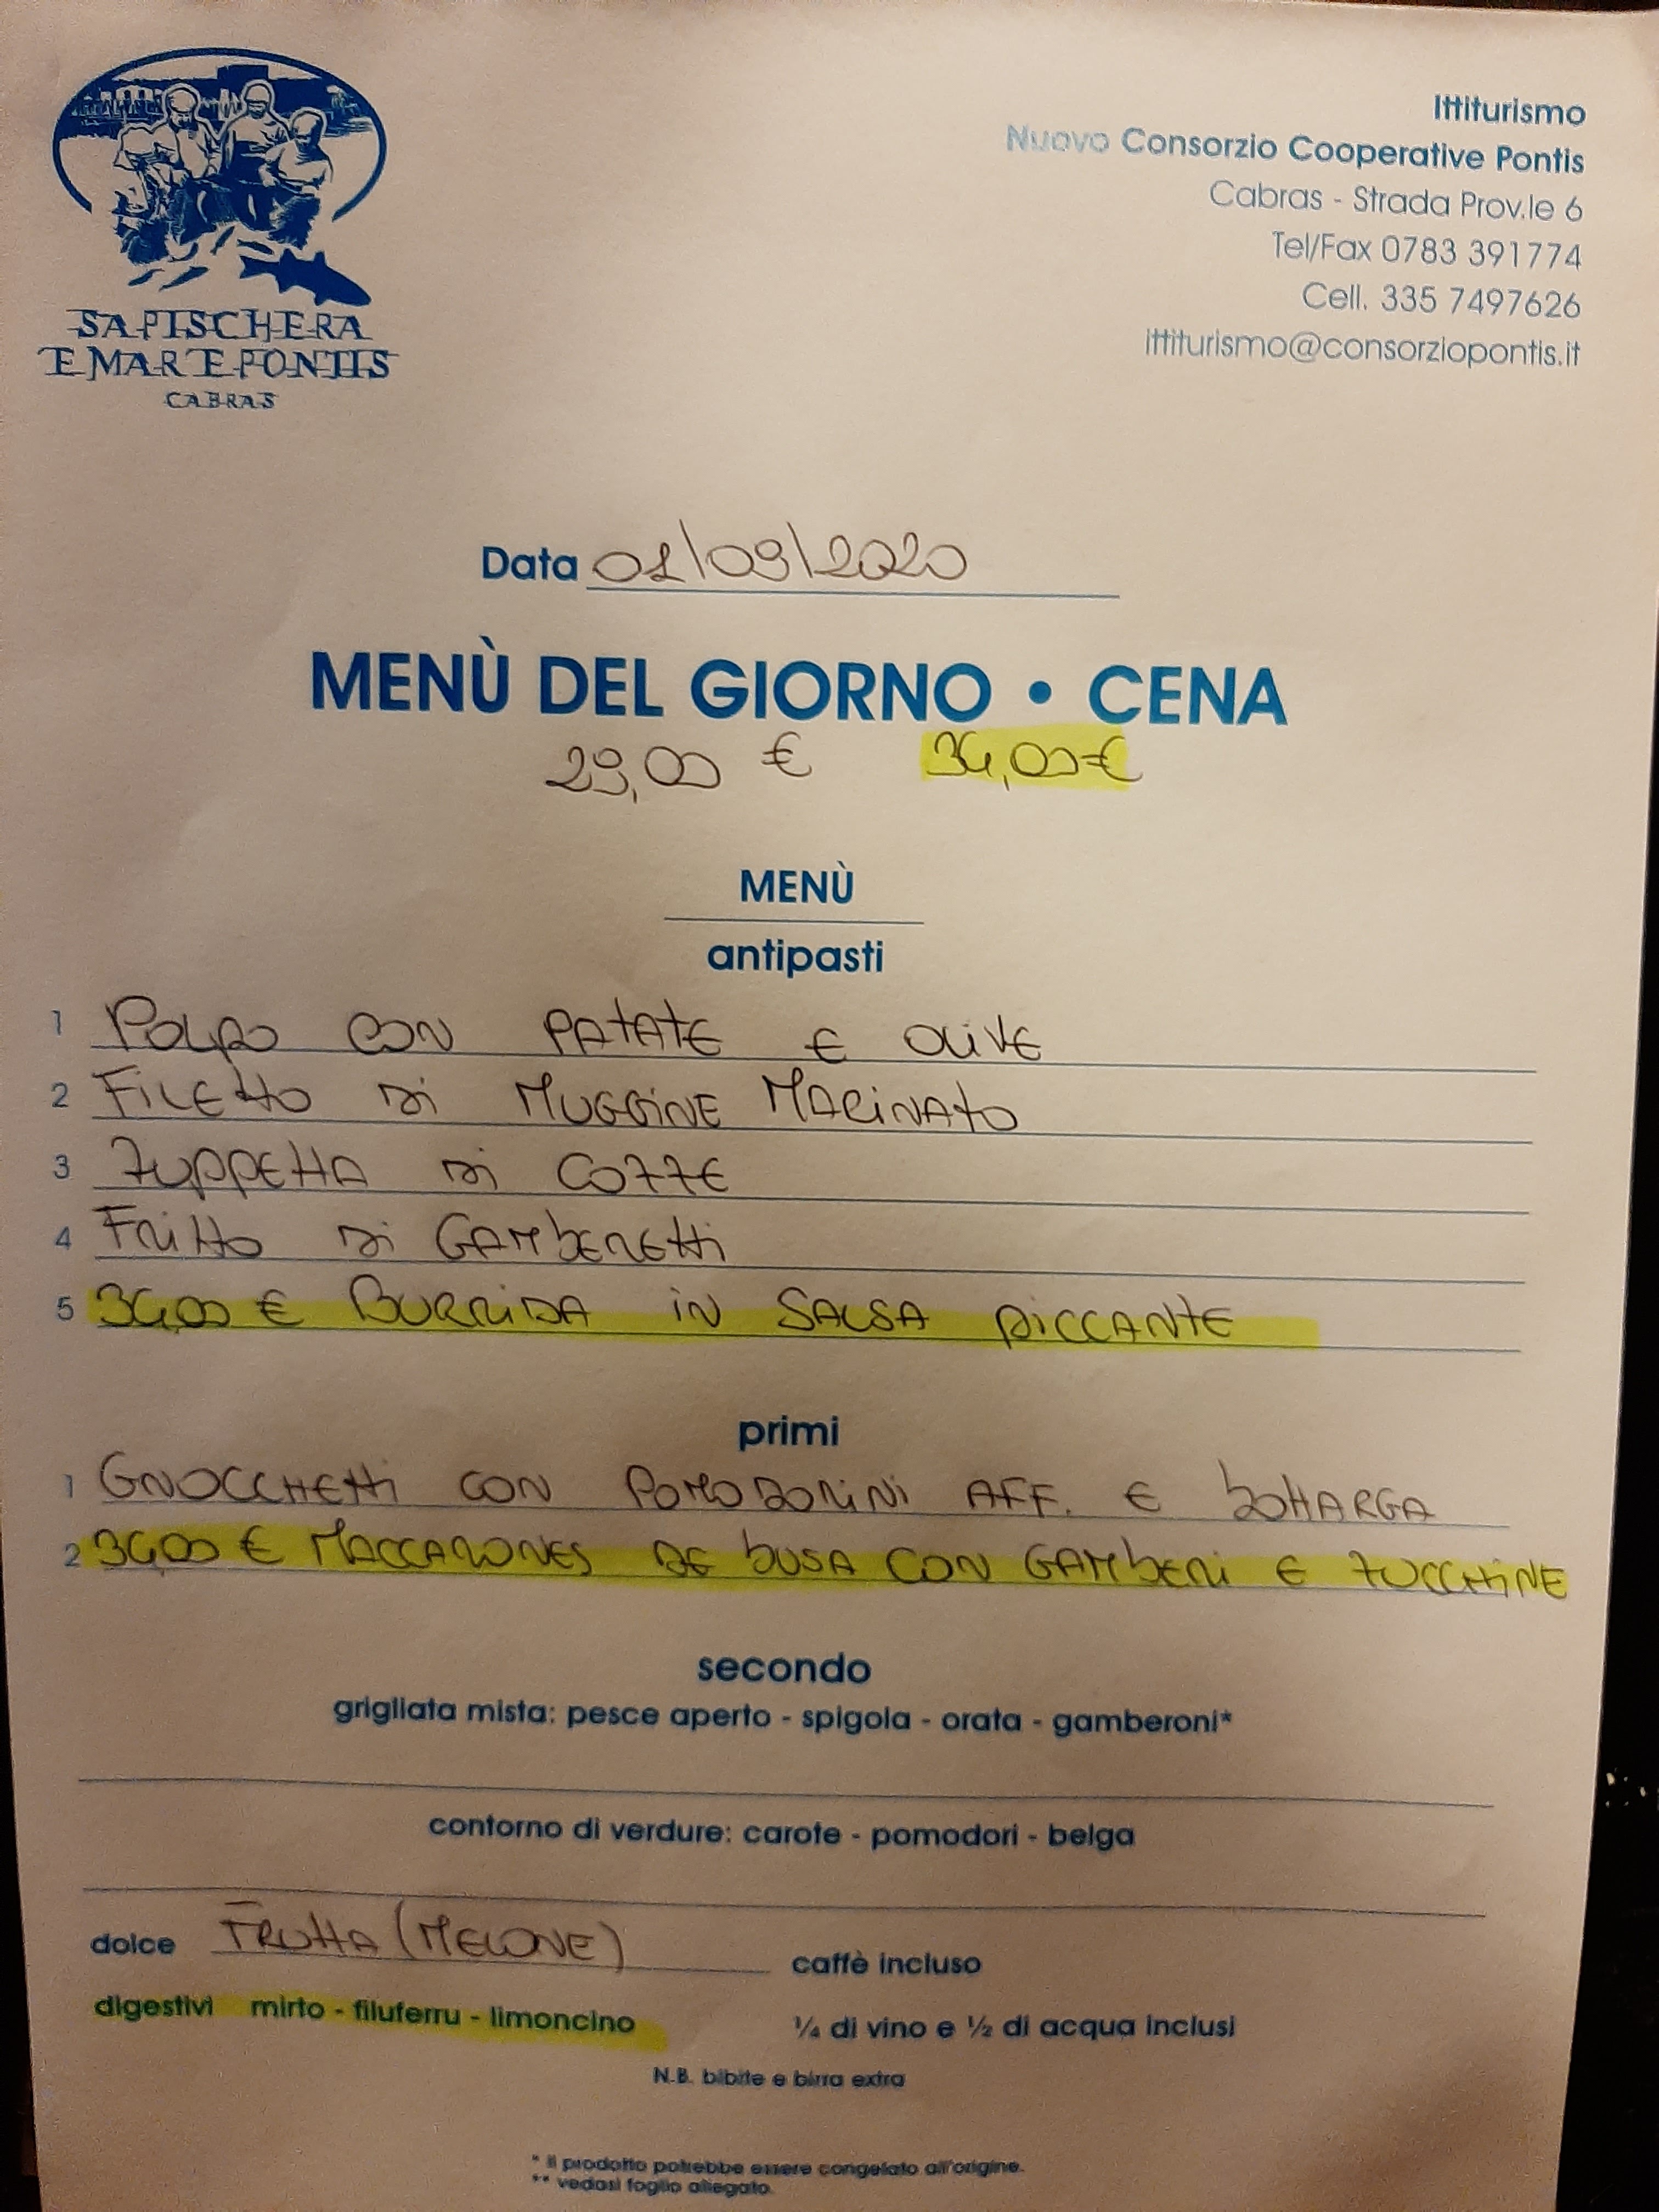 SA PISCHERA
E MAR'E PONTIS
CABRAS
Ittiturismo
Nuovo Consorzio Cooperative Pontis
Cabras - Strada Prov.le 6
Tel/Fax 0783 391774
Cell. 335 7497626
ittiturismo@consorziopontis.it
Data 01\09\2020
MENÙ DEL GIORNO • CENA
29,00 € 34,00 €
MENÙ
antipasti
1 POLPO CON PATATE E OLIVE
2 FILETTO DI MUGGINE MARINATO
3 ZUPPETTA DI COZZE
4 FRITTO DI GAMBERETTI
5 34,00 € BURRIDA IN SALSA PICCANTE
primi
1 GNOCCHETTI CON POMODORINI AFF. E BOTTARGA
2 34,00 € MACCARONES DE BUSA CON GAMBERI E ZUCCHINE
secondo
grigliata mista: pesce aperto - spigola - orata - gamberoni*
contorno di verdure: carote - pomodori - belga
dolce FRUTTA (MELONE) caffè incluso
digestivi mirto - filuferru - limoncino ¼ di vino e ½ di acqua inclusi
N.B. bibite e birra extra
* il prodotto potrebbe essere congelato all'origine.
** vedasi foglio allegato.